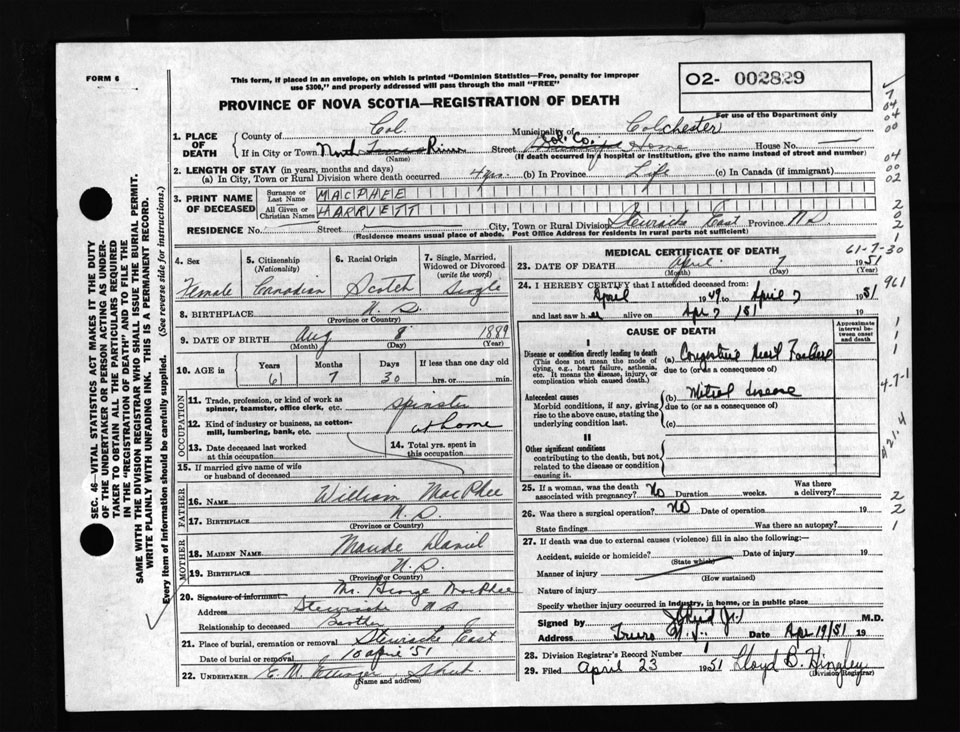 FORM 6
This form, if placed in an envelope, on which is printed "Dominion Statistics—Free, penalty for improper
use $300," and properly addressed will pass through the mail "FREE"
O2- 002829
For use of the Department only
PROVINCE OF NOVA SCOTIA—REGISTRATION OF DEATH
1. PLACE OF DEATH
County of Col. Municipality of Colchester
If in City or Town North River Street Col. Co. Home House No.
(Name) (If death occurred in a hospital or institution, give the name instead of street and number)
2. LENGTH OF STAY (in years, months and days)
(a) In City, Town or Rural Division where death occurred 4 yrs. (b) In Province Life (c) In Canada (if immigrant)
3. PRINT NAME OF DECEASED
Surname or Last Name MACPHEE
All Given or Christian Names HARRIETT
RESIDENCE No. Street City, Town or Rural Division Stewiacke East Province N.S.
(Residence means usual place of abode. Post Office Address for residents in rural parts not sufficient)
4. Sex
Female
5. Citizenship
(Nationality)
Canadian
6. Racial Origin
Scotch
7. Single, Married,
Widowed or Divorced
(write the word)
Single
8. BIRTHPLACE N.S.
(Province or Country)
9. DATE OF BIRTH Aug 8 1889
(Month) (Day) (Year)
10. AGE in
Years Months Days If less than one day old
61 7 30 hrs. or min.
OCCUPATION
11. Trade, profession, or kind of work as
spinner, teamster, office clerk, etc. spinster
12. Kind of industry or business, as cotton-
mill, lumbering, bank, etc. at home
13. Date deceased last worked
at this occupation
14. Total yrs. spent in
this occupation
15. If married give name of wife
or husband of deceased
FATHER
16. NAME William MacPhee
17. BIRTHPLACE N.S.
(Province or Country)
MOTHER
18. MAIDEN NAME Maude Daniel
19. BIRTHPLACE N.S.
(Province or Country)
20. Signature of informant Mr. George MacPhee
Address Stewiacke N.S.
Relationship to deceased Brother
21. Place of burial, cremation or removal Stewiacke East
Date of burial or removal 10 April '51
22. UNDERTAKER E. M. Ettinger, Shub.
(Name and address)
MEDICAL CERTIFICATE OF DEATH
61-7-30
23. DATE OF DEATH April 7 1951
(Month) (Day) (Year)
24. I HEREBY CERTIFY that I attended deceased from:
April 1949 to April 7 1951
and last saw her alive on Apr 7 /51 19
CAUSE OF DEATH
Approximate
interval be-
tween onset
and death
I
Disease or condition directly leading to death
(This does not mean the mode of
dying, e.g., heart failure, asthenia,
etc. It means the disease, injury, or
complication which caused death.)
(a) Congestive Heart Failure
due to (or as a consequence of)
Antecedent causes
Morbid conditions, if any, giving
rise to the above cause, stating the
underlying condition last.
(b) Mitral disease
due to (or as a consequence of)
(c)
II
Other significant conditions
contributing to the death, but not
related to the disease or condition
causing it.
25. If a woman, was the death
associated with pregnancy? No Duration weeks. Was there
a delivery?
26. Was there a surgical operation? NO Date of operation 19
State findings Was there an autopsy?
27. If death was due to external causes (violence) fill in also the following:—
Accident, suicide or homicide? Date of injury 19
(State which)
Manner of injury
(How sustained)
Nature of injury
Specify whether injury occurred in industry, in home, or in public place
Signed by M.D.
Address Truro N.S. Date Apr 19/51
28. Division Registrar's Record Number 1
29. Filed April 23 1951 Lloyd B. Hingley
(Division Registrar)
SEC. 46—VITAL STATISTICS ACT MAKES IT THE DUTY
OF THE UNDERTAKER OR PERSON ACTING AS UNDER-
TAKER TO OBTAIN ALL THE PARTICULARS REQUIRED
IN THE "REGISTRATION OF DEATH" AND TO FILE THE
SAME WITH THE DIVISION REGISTRAR WHO SHALL ISSUE THE BURIAL PERMIT.
WRITE PLAINLY WITH UNFADING INK. THIS IS A PERMANENT RECORD.
Every item of information should be carefully supplied. (See reverse side for instructions.)
7
04
04
00
04
00
02
2
0
2
1
961
1
1
1
1
4-7-1
2
2
1